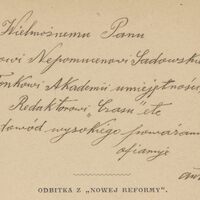 Wielmożnemu Panu
owi Nepomucenowi Sadowskie
łonkowi Akademii umiejętnośc
Redaktorowi „Czasu” etc
dowód wysokiego poważani
ofiaruje
aut
ODBITKA Z „NOWEJ REFORMY”.